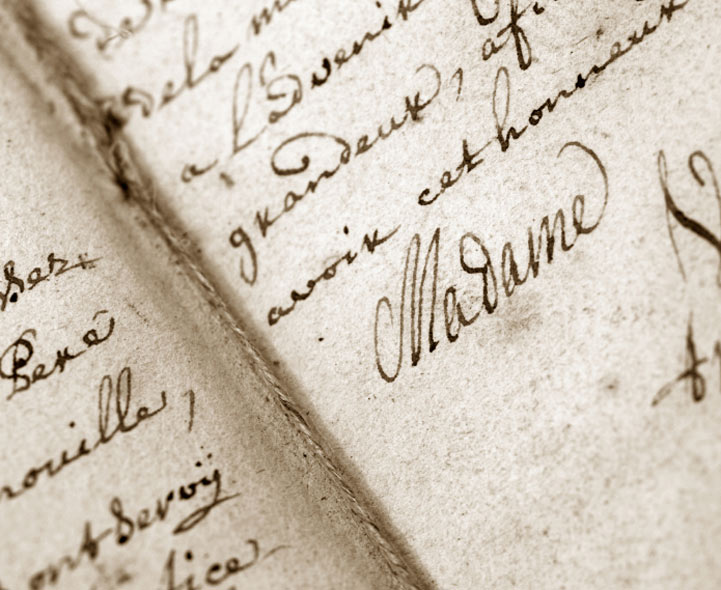 de
dela
a l'advenir
grandeur, afi
avoir cet honneur
Madame
Pere
nouille,
ont servÿ
lice